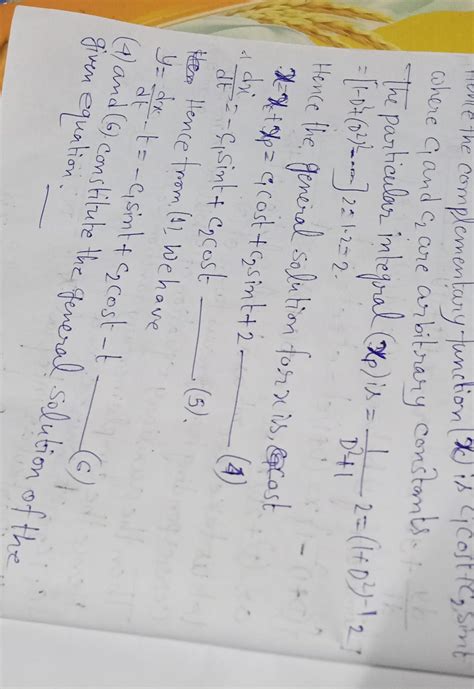 Hence the complementary function (x) is c₁cost+c₂sint
where c₁ and c₂ are arbitrary constants.
The particular integral (xp) is = 1/(D²+1) 2 = (1+D²)-1 2]
= [1-D²+(D²)²----] 2 = 1·2 = 2.
Hence the general solution for x is,
x = xc + xp = c₁cost + c₂sint + 2 —— (4)
∴ dx/dt = -c₁sint + c₂cost —— (5).
Hence from (1), we have
y = dx/dt - t = -c₁sint + c₂cost - t —— (6)
(4) and (6) constitute the general solution of the
given equation.